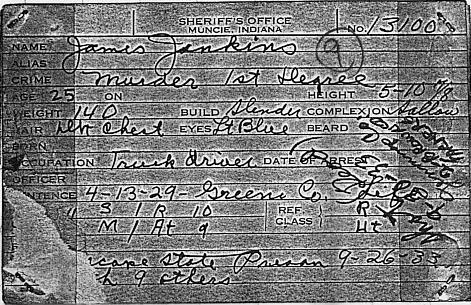 SHERIFF'S OFFICE
MUNCIE, INDIANA
No. 13100
NAME James Jenkins 9
ALIAS
CRIME Murder 1st Degree
AGE 25 ON HEIGHT 5-10
WEIGHT 140 BUILD Slender COMPLEXION Sallow
HAIR Chest EYES Lt Blue BEARD
BORN
OCCUPATION Truck driver DATE OF ARREST
OFFICER
SENTENCE 4-13-29- Greene Co.
S / R 10 REF. R
M / At 9 CLASS Ht
cape State Prison 9-26-33
9 others